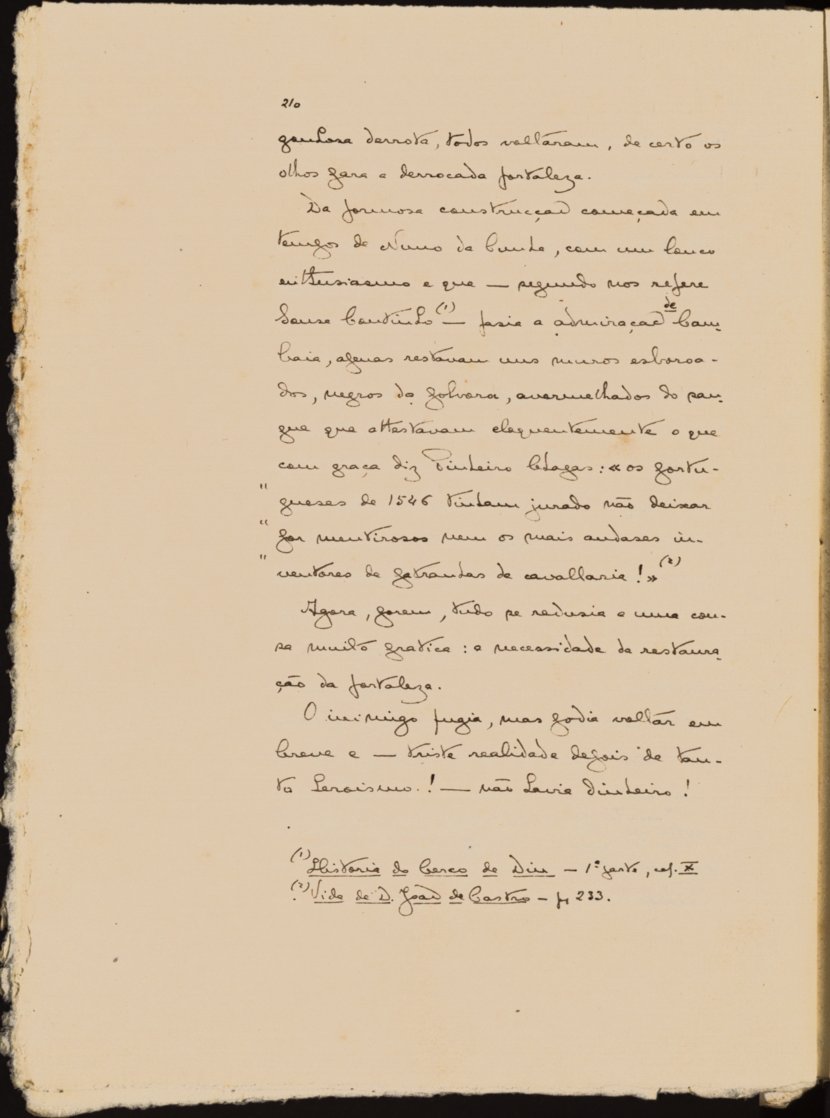 210
gonhosa derrota, todos voltáram, de certo os
olhos para a derrocada fortaleza.
Da formosa construcção começada em
tempos de Nuno da Cunha, com um louco
enthusiasmo e que — segundo nos refere
Sousa Coutinho (1) — fasia a admiração de Cam-
baia, apenas restavam uns muros esboroa-
dos, negros da polvora, avermelhados do san-
gue que attestavam eloquentemente o que
com graça diz Pinheiro Chagas: «os portu-
" gueses de 1546 tinham jurado não deixar
" por mentirosos nem os mais audases in-
" ventores de patranhas de cavallaria!» (2)
Agora, porem, tudo se redusia a uma cou-
sa muito pratica: a necessidade da restaura-
ção da fortaleza.
O inimigo fugia, mas podia voltár em
breve e — triste realidade depois de tan-
to heroismo! — não havia dinheiro!
(1) Historia do Cerco de Diu — 1ª parte, cap. X
(2) Vida de D. João de Castro — p. 233.